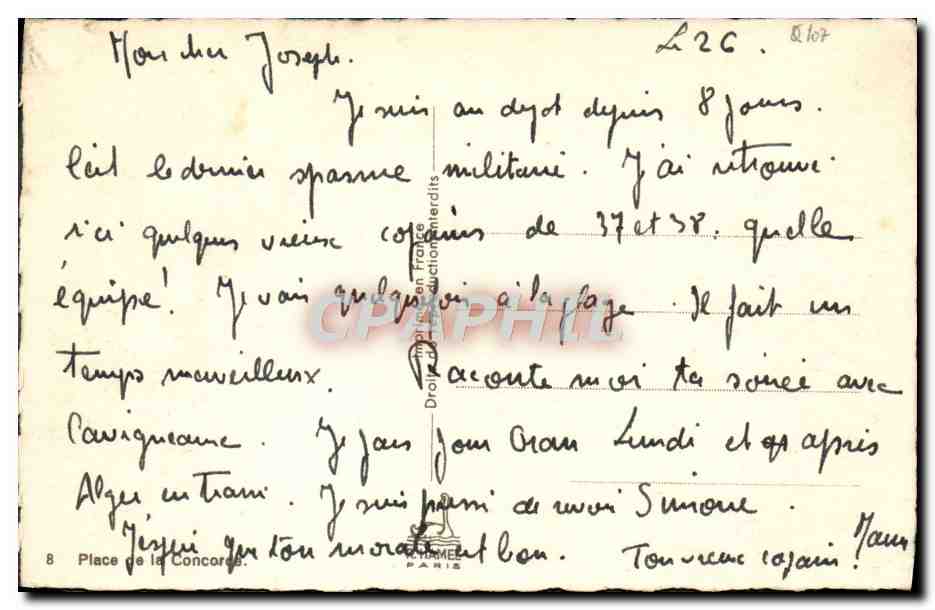 Mon cher Joseph. Le 26. Q107
Je suis au depot depuis 8 jours.
C'est le dernier spasme militaire. J'ai retrouvé
ici quelques vieux copains de 37 et 38. quelle
équipe! Je vais quelquefois à la plage. Il fait un
temps merveilleux. Raconte moi ta soirée avec
Je pars pour Oran Lundi et après
Alger en train. Je suis de revoir Simone.
J'espère que ton morale est bon. Ton vieux copain!
8 Place de la Concorde.
Imprimé en France
Droits de reproduction interdits
CPAPHIL
PARIS